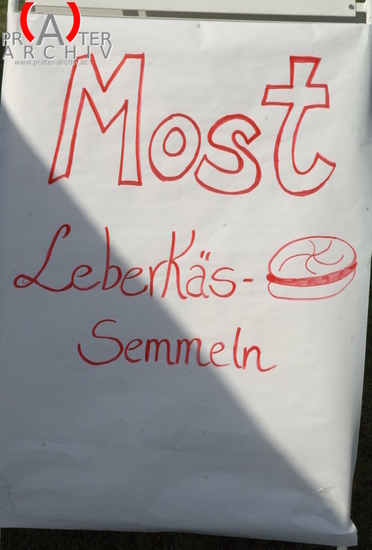 PR(A)TER
ARCHIV
www.prater-archiv.at
Most
Leberkäs-
Semmeln